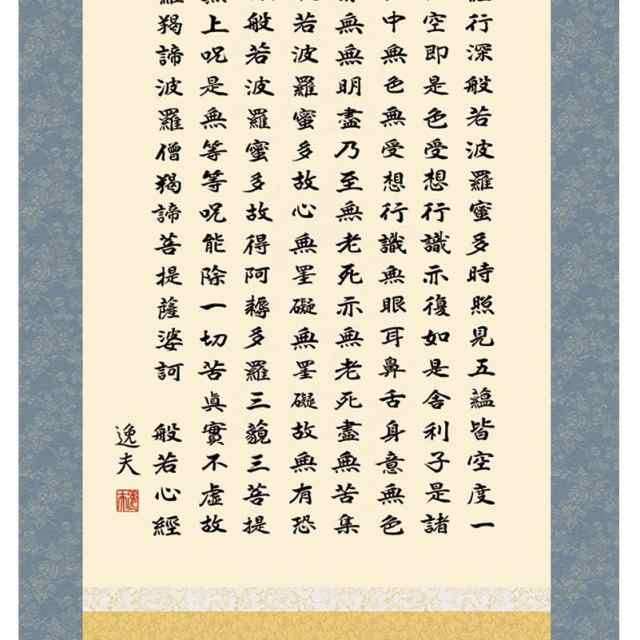 行深般若波羅蜜多時照見五蘊皆空度一
空即是色受想行識亦復如是舍利子是諸
中無色無受想行識無眼耳鼻舌身意無色
無無明盡乃至無老死亦無老死盡無苦集
若波羅蜜多故心無罣礙無罣礙故無有恐
般若波羅蜜多故得阿耨多羅三藐三菩提
上呪是無等等呪能除一切苦眞實不虛故
羯諦波羅僧羯諦菩提薩婆訶 般若心經
逸夫